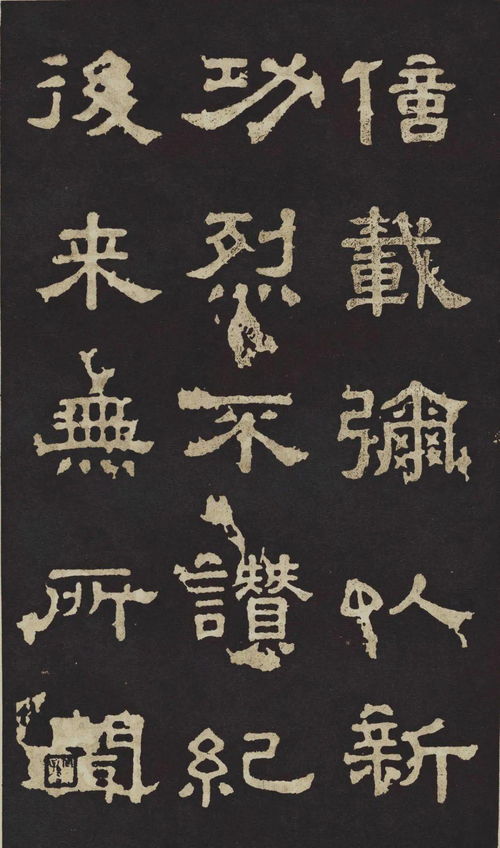 億載彌以新
功烈不讚紀
後来無所聞